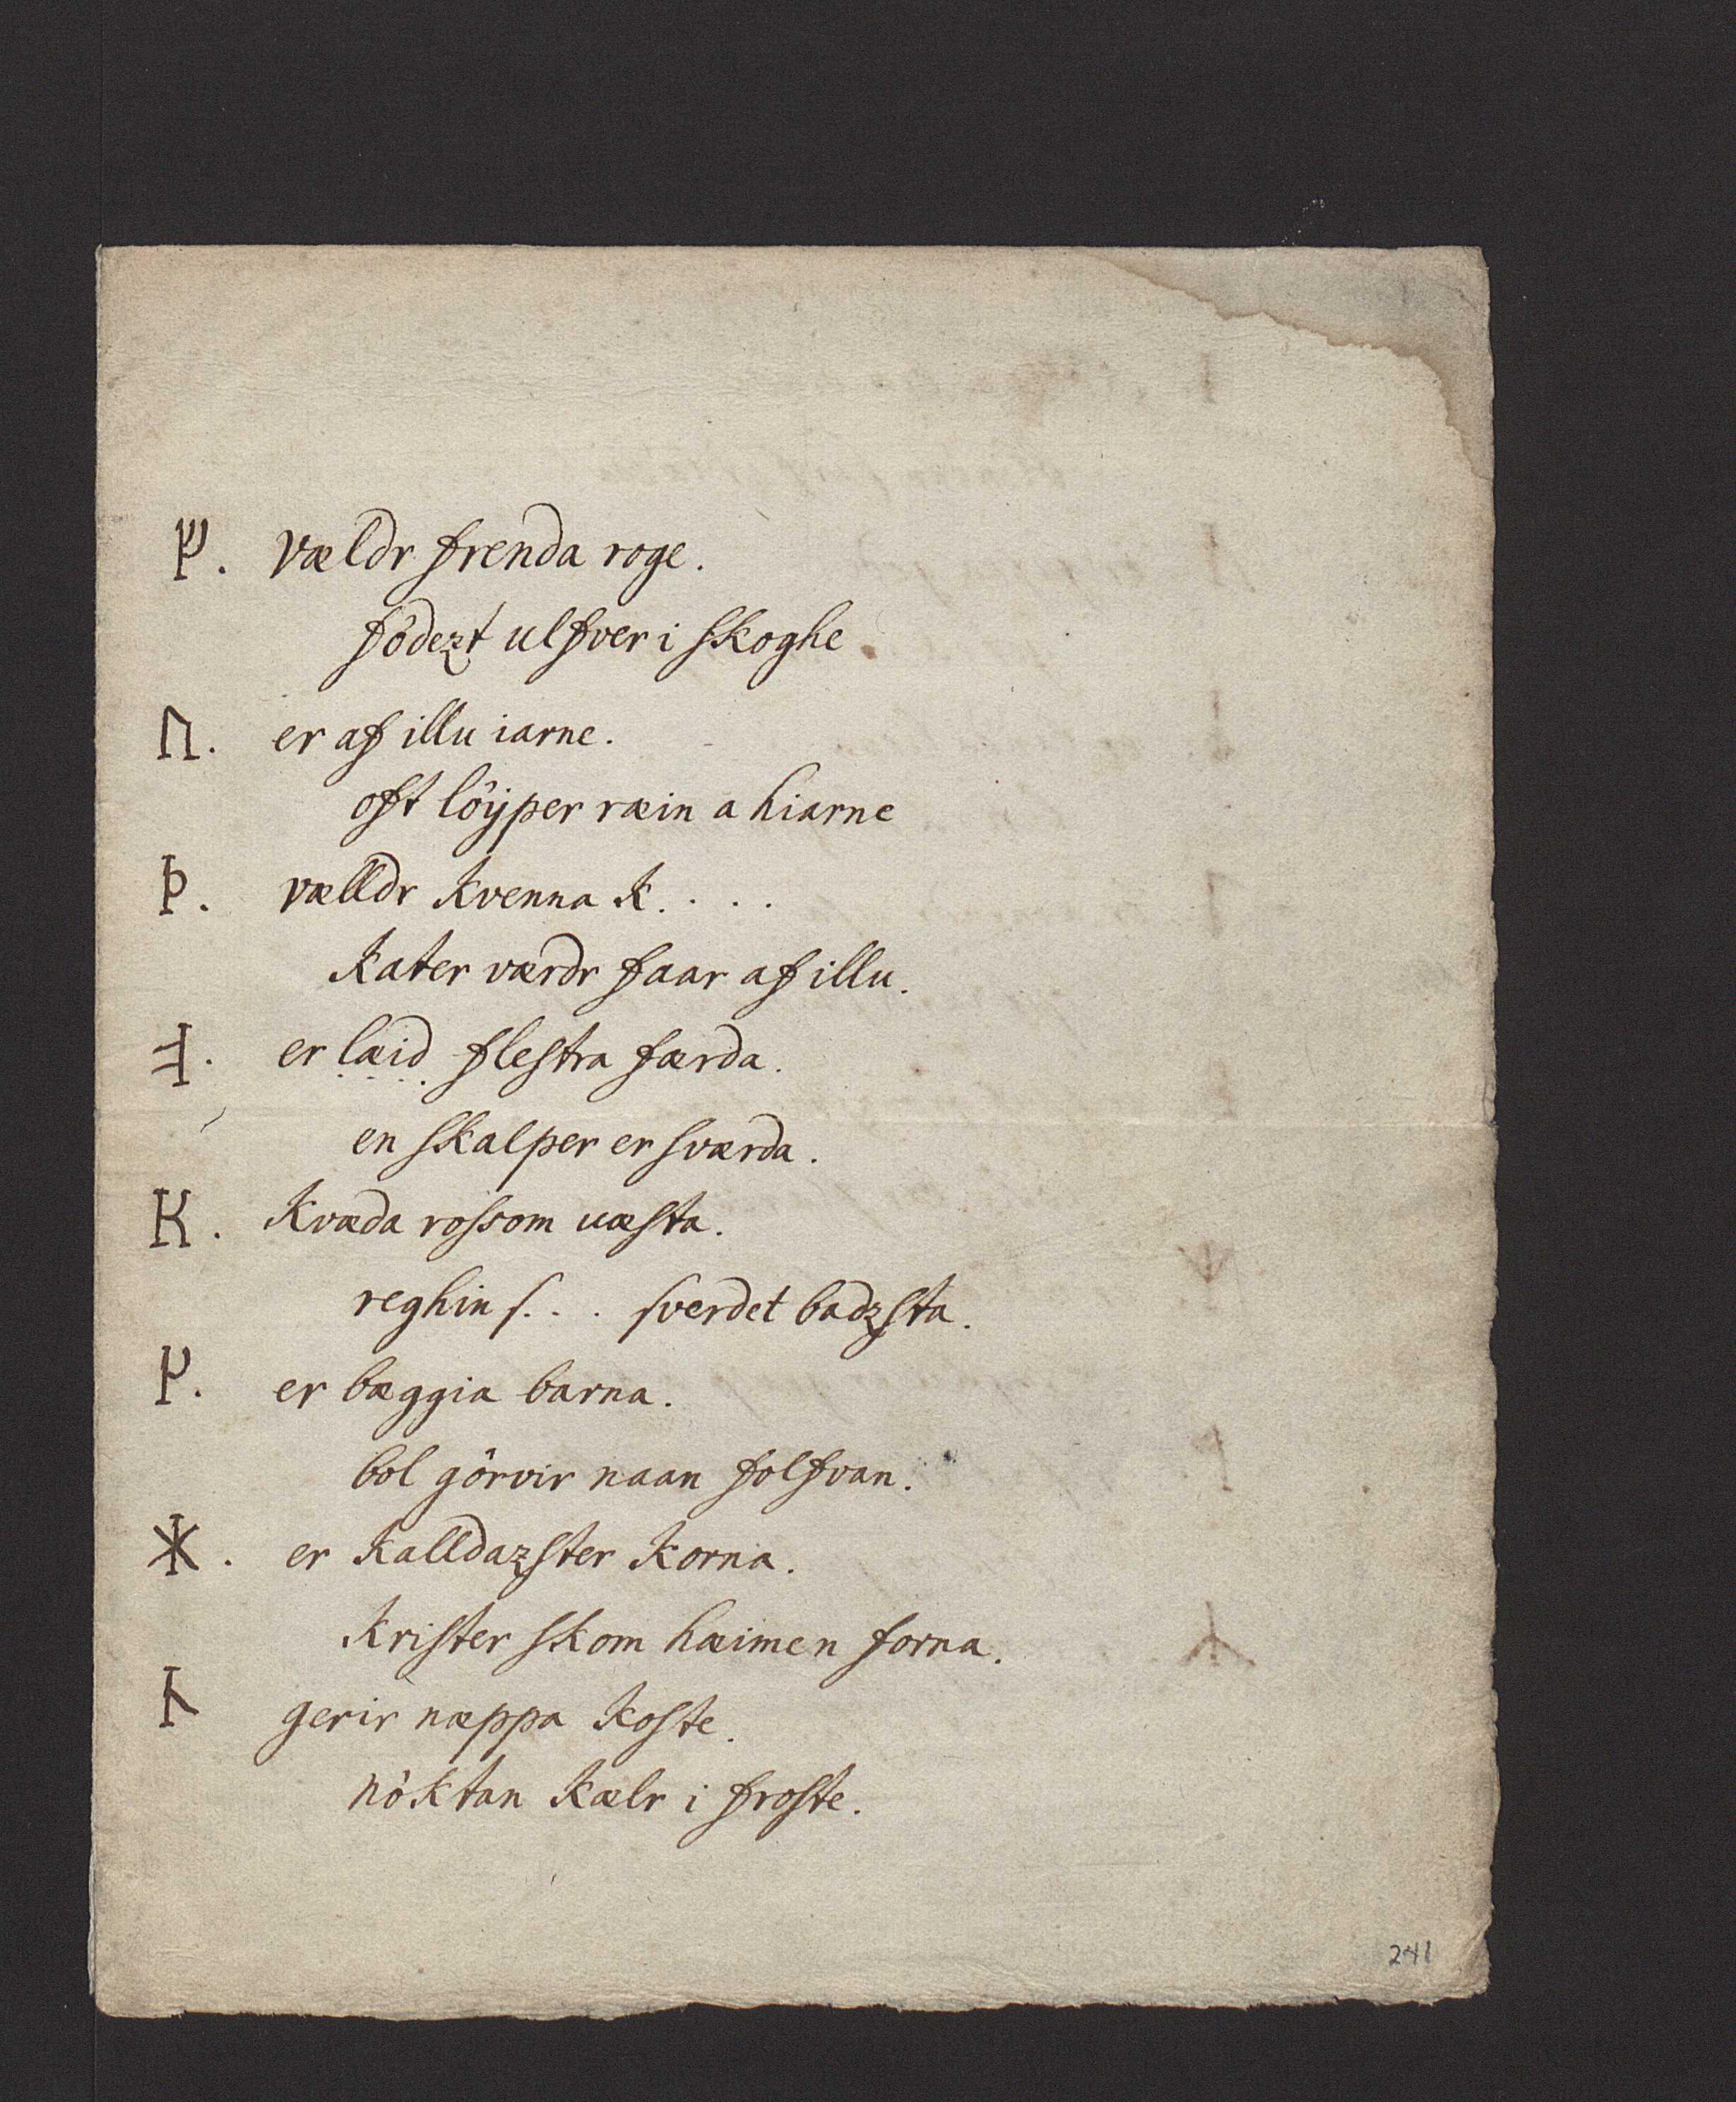 ᚠ. vældr frenda roge.
födezt ulfver i skoghe.
ᚢ. er af illu iarne.
oft löyper ræin a hiarne
ᚦ. vælldr kvenna k. . . .
kater værdr faar af illu.
ᚮ. er læid flestra færda.
en skalper er sværda.
R. kvæda rossom uæsta.
reghin s. . . sverdet badzsta.
ᚴ. er bæggia barna.
bol görvir naan folfvan.
ᚼ. er kalldazster korna.
krister skom hæimen forna.
ᚿ gerir næppa koste.
nöktan kælr i froste.
241